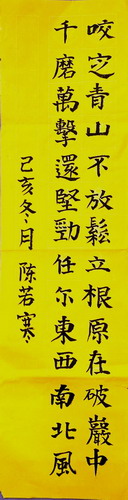 咬定青山不放鬆立根原在破巖中
千磨萬擊還堅勁任尔東西南北風
己亥冬月 陈若寒